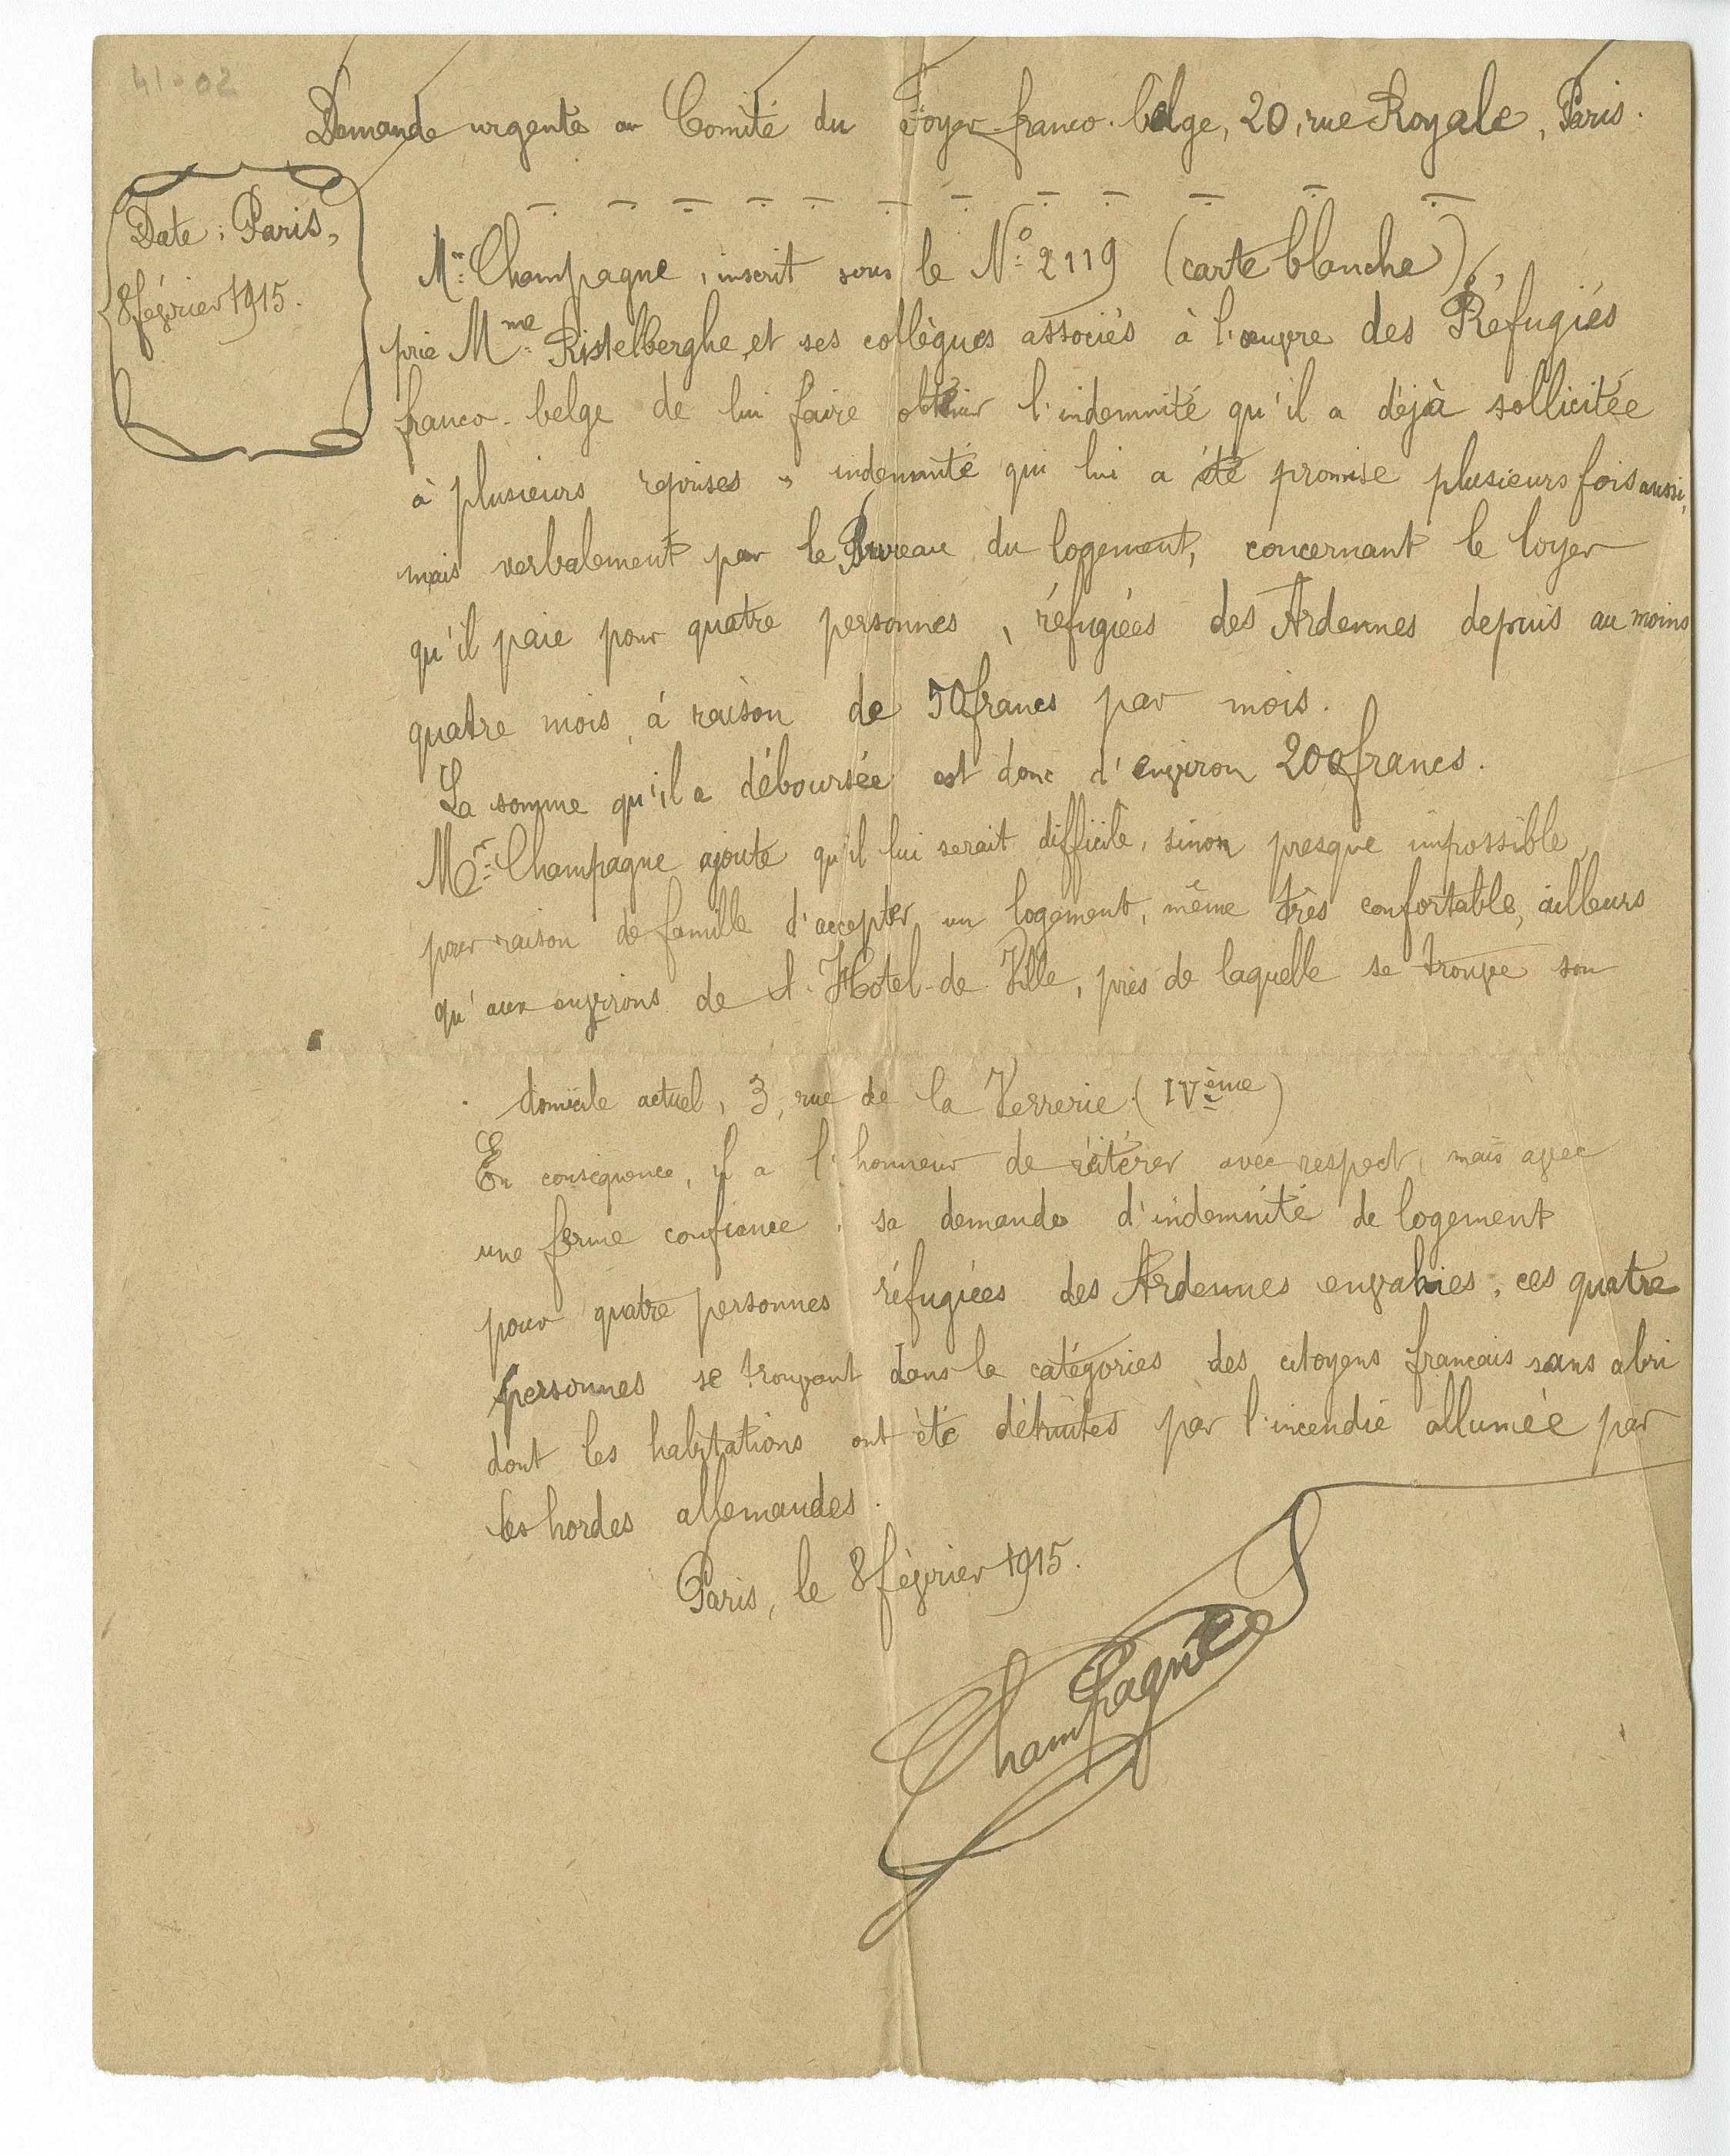 41-02
Demande urgente au Comité du Foyer franco-belge, 20, rue Royale, Paris.
Date : Paris,
8 février 1915.
Mr. Champagne, inscrit sous le No. 2119 (carte blanche),
prie Mme. Ristelberghe, et ses collègues associés à l'œuvre des Réfugiés
franco-belge de lui faire obtenir l'indemnité qu'il a déjà sollicitée
à plusieurs reprises, indemnité qui lui a été promise plusieurs fois aussi,
mais verbalement par le Bureau du logement, concernant le loyer
qu'il paie pour quatre personnes, réfugiées des Ardennes depuis au moins
quatre mois, à raison de 50 francs par mois.
La somme qu'il a déboursée est donc d'environ 200 francs.
Mr. Champagne ajoute qu'il lui serait difficile, sinon presque impossible,
pour raison de famille d'accepter un logement, même très confortable, ailleurs
qu'aux environs de l'Hôtel-de-Ville, près de laquelle se trouve son
domicile actuel, 3, rue de la Verrerie (IVème)
En conséquence, il a l'honneur de réitérer avec respect, mais avec
une ferme confiance, sa demande d'indemnité de logement
pour quatre personnes réfugiées des Ardennes envahies, ces quatre
personnes se trouvant dans la catégories des citoyens français sans abri
dont les habitations ont été détruites par l'incendie allumée par
les hordes allemandes.
Paris, le 8 février 1915.
Champagne